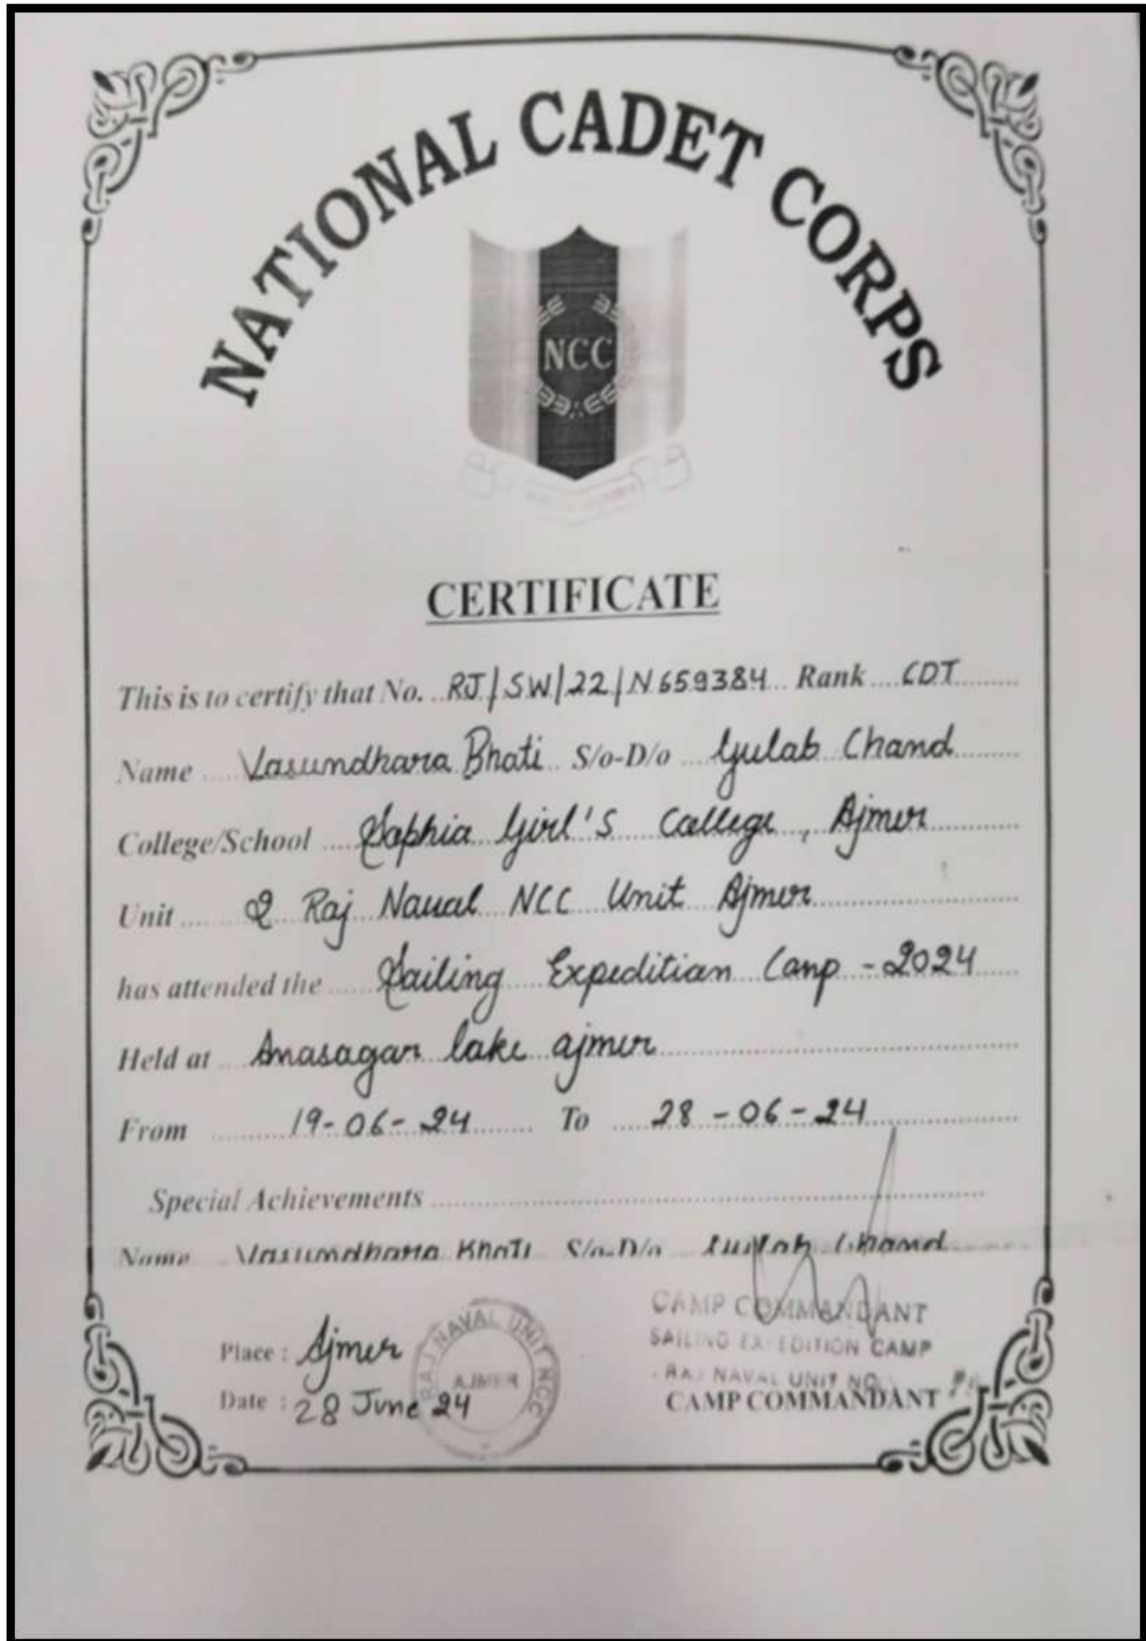 NATIONAL CADET CORPS
NCC
CERTIFICATE
This is to certify that No. RJ/SW/22/N659384 Rank CDT
Name Vasundhara Bhati S/o-D/o Gulab Chand
College/School Sophia Girl's College, Ajmer
Unit 2 Raj Naval NCC Unit Ajmer
has attended the Sailing Expedition Camp - 2024
Held at Anasagar lake ajmer
From 19-06-24 To 28-06-24
Special Achievements
Name Vasundhara S/o-D/o Chand
CAMP COMMANDANT
SAILING EXPEDITION CAMP
RAJ NAVAL UNIT NCC
Place : Ajmer
Date : 28 June 24
RAJ NAVAL UNIT NCC
AJMER
CAMP COMMANDANT